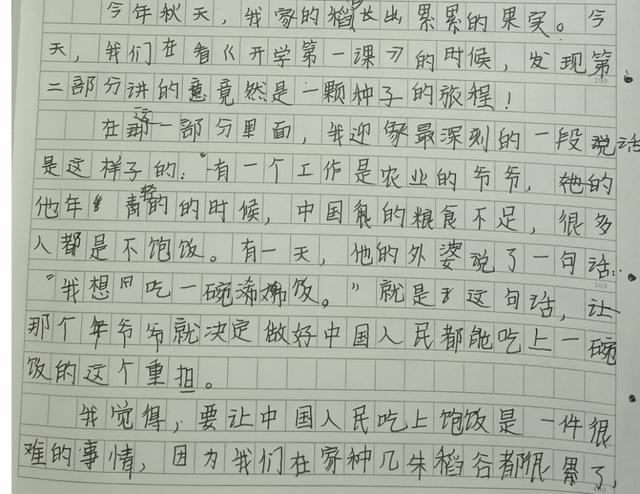 今年秋天，我家的稻长出累累的果实。今
天，我们在看《开学第一课》的时候，发现第
二部分讲的意竟然是一颗种子的旅程！
在这一部分里面，我迎家最深刻的一段说话
是这样子的："有一个工作是农业的爷爷，他的
他年轻的的时候，中国的粮食不足，很多
人都是不饱饭。有一天，他的外婆说了一句话：
"我想吃一碗沸沸饭。"就是这句话，让
那个年爷爷就决定做好中国人民都能吃上一碗
饭的这个重担。
我觉得，要让中国人民吃上饱饭是一件很
难的事情，因为我们在家种几朱稻谷都很累了，